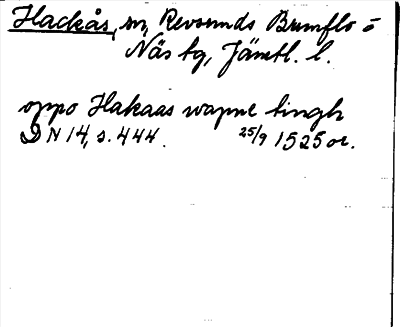 Hackås, sn, Revsunds Brunflo o
Näs tg, Jämtl. l.
oppo Hakaas wapne tingh
DN 14, s. 444. 25/9 1525 or.